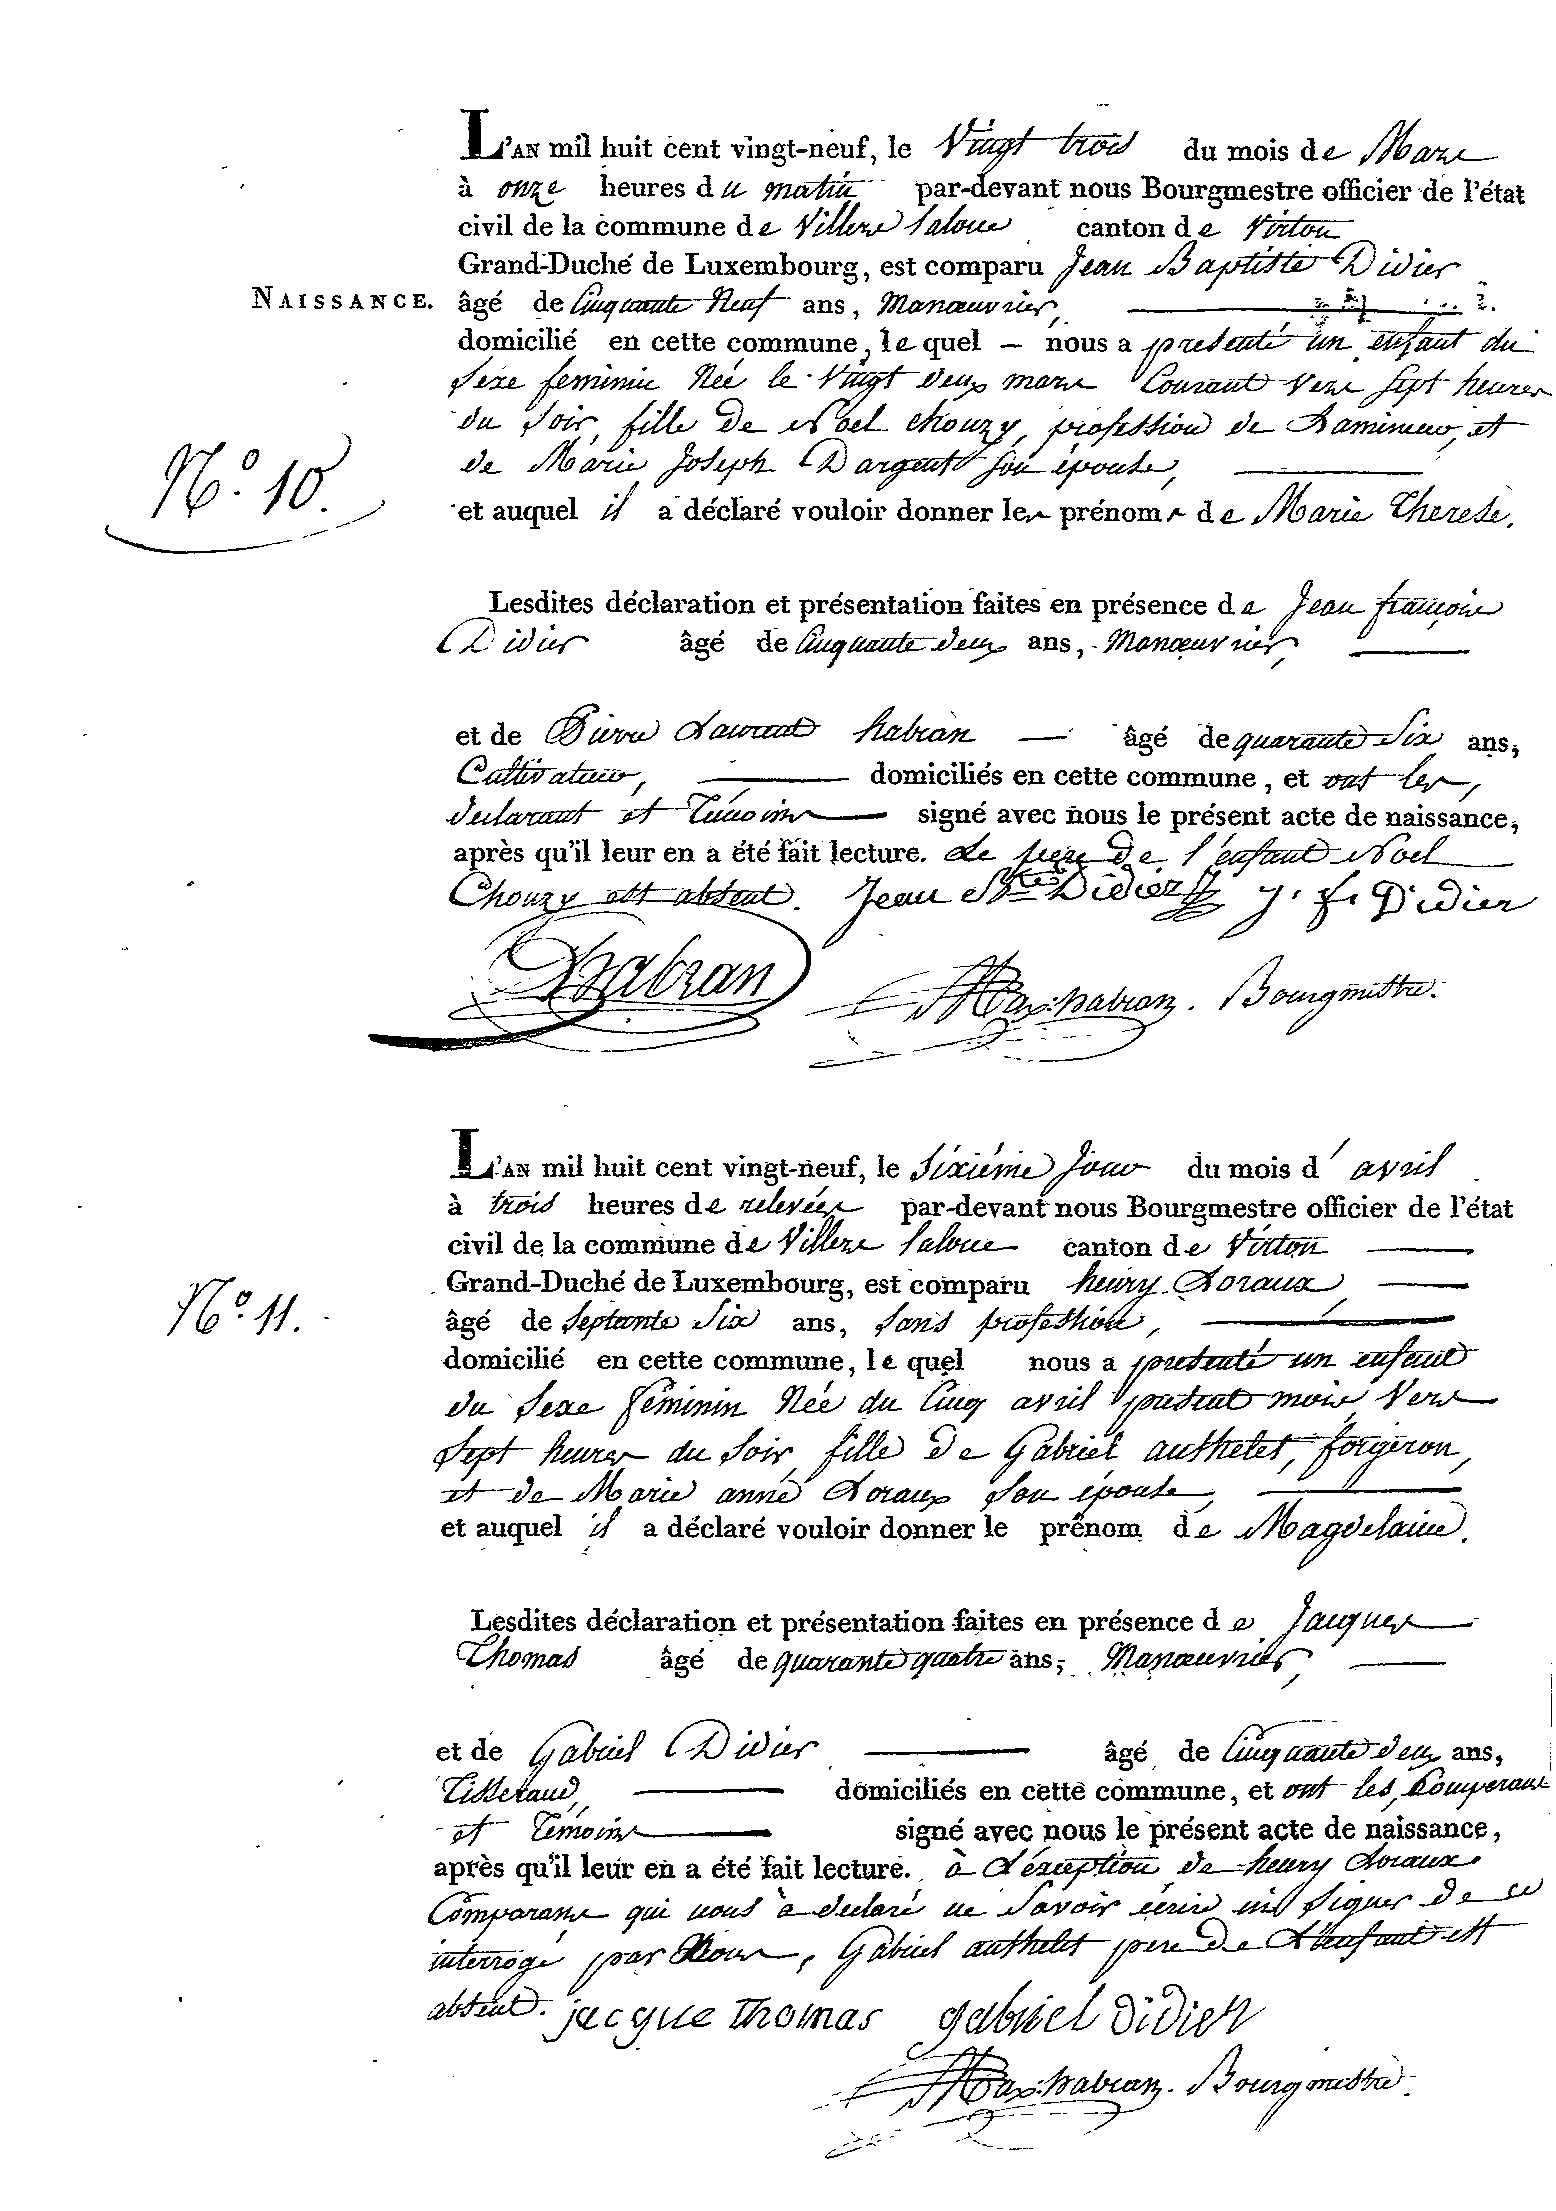 L'AN mil huit cent vingt-neuf, le Vingt trois du mois de Mars
à onze heures du matin par-devant nous Bourgmestre officier de l'état
civil de la commune de Villers Laloue canton de Virton
Grand-Duché de Luxembourg, est comparu Jean Baptiste Didier
NAISSANCE. âgé de Cinquante Neuf ans, Manœuvrier,
domicilié en cette commune, le quel — nous a presenté un enfant du
Sexe feminin Née le Vingt deux mars Courant vers Sept heures
du Soir, fille de Noel Chouzy, profession de Lamineur, et
de Marie Joseph Dargent Son épouse,
N.º 10.
et auquel il a déclaré vouloir donner les prénoms de Marie Therese.
Lesdites déclaration et présentation faites en présence de Jean françois
Didier âgé de Cinquante deux ans, Manœuvrier,
et de Pierre Laurent habran — âgé de quarante Six ans,
Cultivateur, domiciliés en cette commune, et ont les,
declarant et Témoins signé avec nous le présent acte de naissance,
après qu'il leur en a été fait lecture. Le pere de l'enfant Noel
Chouzy est absent. Jean Bte Didier J. f. Didier
Habran Max. habran. Bourgmestre.
L'AN mil huit cent vingt-neuf, le Sixiéme Jour du mois d'avril
à trois heures de relevées par-devant nous Bourgmestre officier de l'état
civil de la commune de Villers Laloue canton de Virton
Grand-Duché de Luxembourg, est comparu henry Loraux
N.º 11.
âgé de Septante Six ans, Sans profession,
domicilié en cette commune, le quel nous a presenté un enfant
du Sexe féminin Née du Cinq avril present mois, Vers
Sept heures du Soir, fille de Gabriel authelet, forgeron,
et de Marie anne Loraux Son épouse,
et auquel il a déclaré vouloir donner le prénom de Magdelaine.
Lesdites déclaration et présentation faites en présence de Jacques
Thomas âgé de quarante quatre ans, Manœuvrier,
et de Gabriel Didier âgé de Cinquante deux ans,
Tisserand, domiciliés en cette commune, et ont les, Comperans
et Témoins signé avec nous le présent acte de naissance,
après qu'il leur en a été fait lecture. à L'éxception de henry Loraux
Comparans qui nous à declaré ne Savoir écrire ni Signer de ce
interrogé par Nous, Gabriel authelet pere de L'enfant est
absent. jacque Thomas gabriel didier
Max. habran. Bourgmestre.